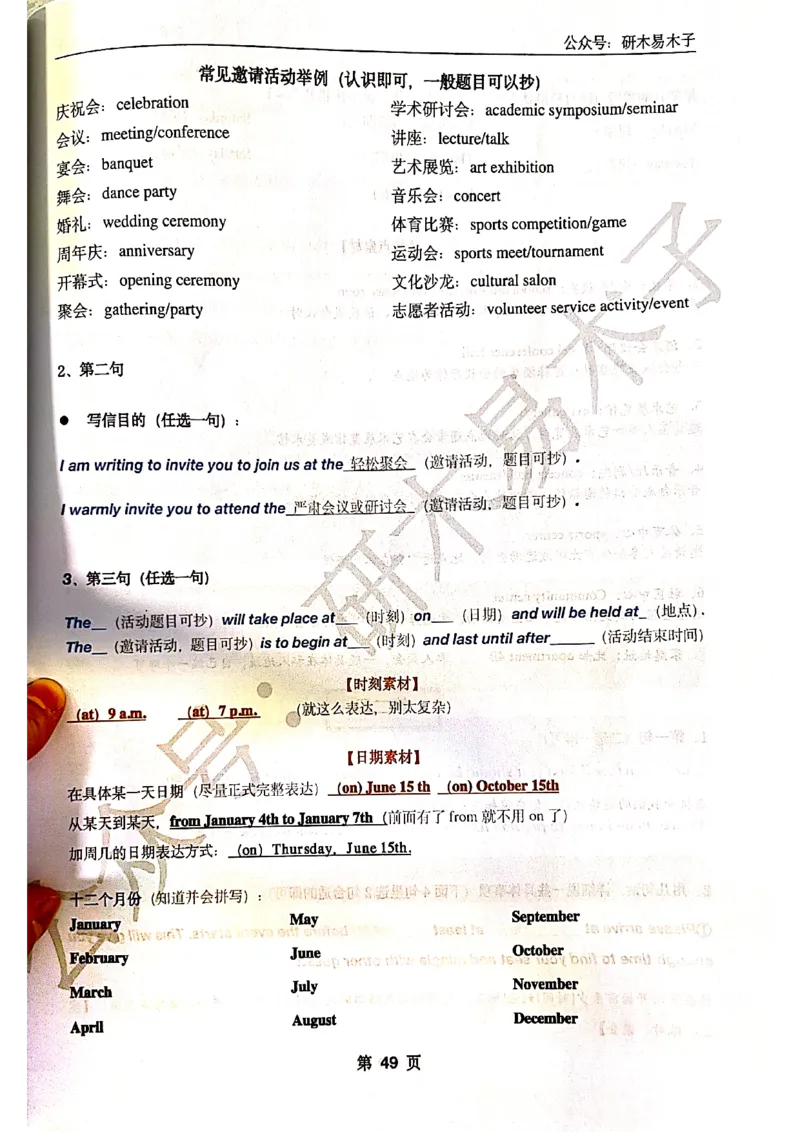 公众号：研木易木子
常见邀请活动举例（认识即可，一般题目可以抄）
庆祝会：celebration
会议：meeting/conference
宴会：banquet
舞会：dance party
婚礼：wedding ceremony
周年庆：anniversary
开幕式：opening ceremony
聚会：gathering/party
学术研讨会：academic symposium/seminar
讲座：lecture/talk
艺术展览：art exhibition
音乐会：concert
体育比赛：sports competition/game
运动会：sports meet/tournament
文化沙龙：cultural salon
志愿者活动：volunteer service activity/event
2、第二句
● 写信目的（任选一句）：
I am writing to invite you to join us at the 轻松聚会 （邀请活动，题目可抄）.
I warmly invite you to attend the 严肃会议或研讨会 （邀请活动，题目可抄）.
3、第三句（任选一句）
The__（活动题目可抄）will take place at___（时刻）on___（日期）and will be held at_（地点）.
The__（邀请活动，题目可抄）is to begin at___（时刻）and last until after______（活动结束时间）
【时刻素材】
(at) 9 a.m. (at) 7 p.m. （就这么表达，别太复杂）
【日期素材】
在具体某一天日期（尽量正式完整表达） (on) June 15 th (on) October 15th
从某天到某天，from January 4th to January 7th（前面有了 from 就不用 on 了）
加周几的日期表达方式： (on) Thursday, June 15th.
十二个月份（知道并会拼写）：
January
February
March
April
May
June
July
August
September
October
November
December
第 49 页
公众号：研木易木子